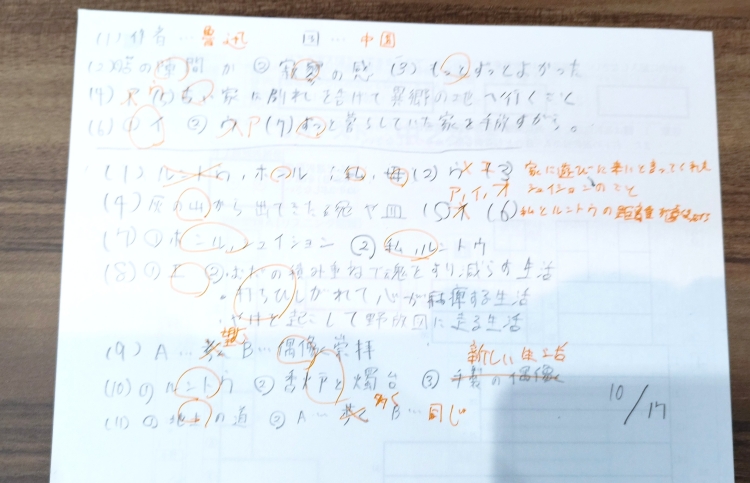 (1) 作者…魯迅 国…中国
(2) 店の隙間が ② 寂寥の感 (3) もっとずっとよかった
(4) 古い家に別れを告げて異郷の地へ行くこと
(6) ① イ ② ア (7) ずっと暮らしていた家を手放すから。
(1) ルントウ, ホンル ; 私, 母 (2) 家に遊びに来いと言ってくれた
ア, イ, オ シュイションのこと
(4) 灰の山から出てきた碗や皿 (5) (6) 私とルントウの距離
(7) ① ホンル, シュイション ② 私, ルントウ
(8) ① ② むだの積み重ねで魂をすり減らす生活
・打ちひしがれて心が麻痺する生活
・やけを起こして野放図に走る生活
(9) A… B…偶像崇拝 新しい生活
(10) ① ルントウ ② 香炉と燭台 ③ 手製の偶像
(11) ① 地上の道 ② A… B…同じ
10/17